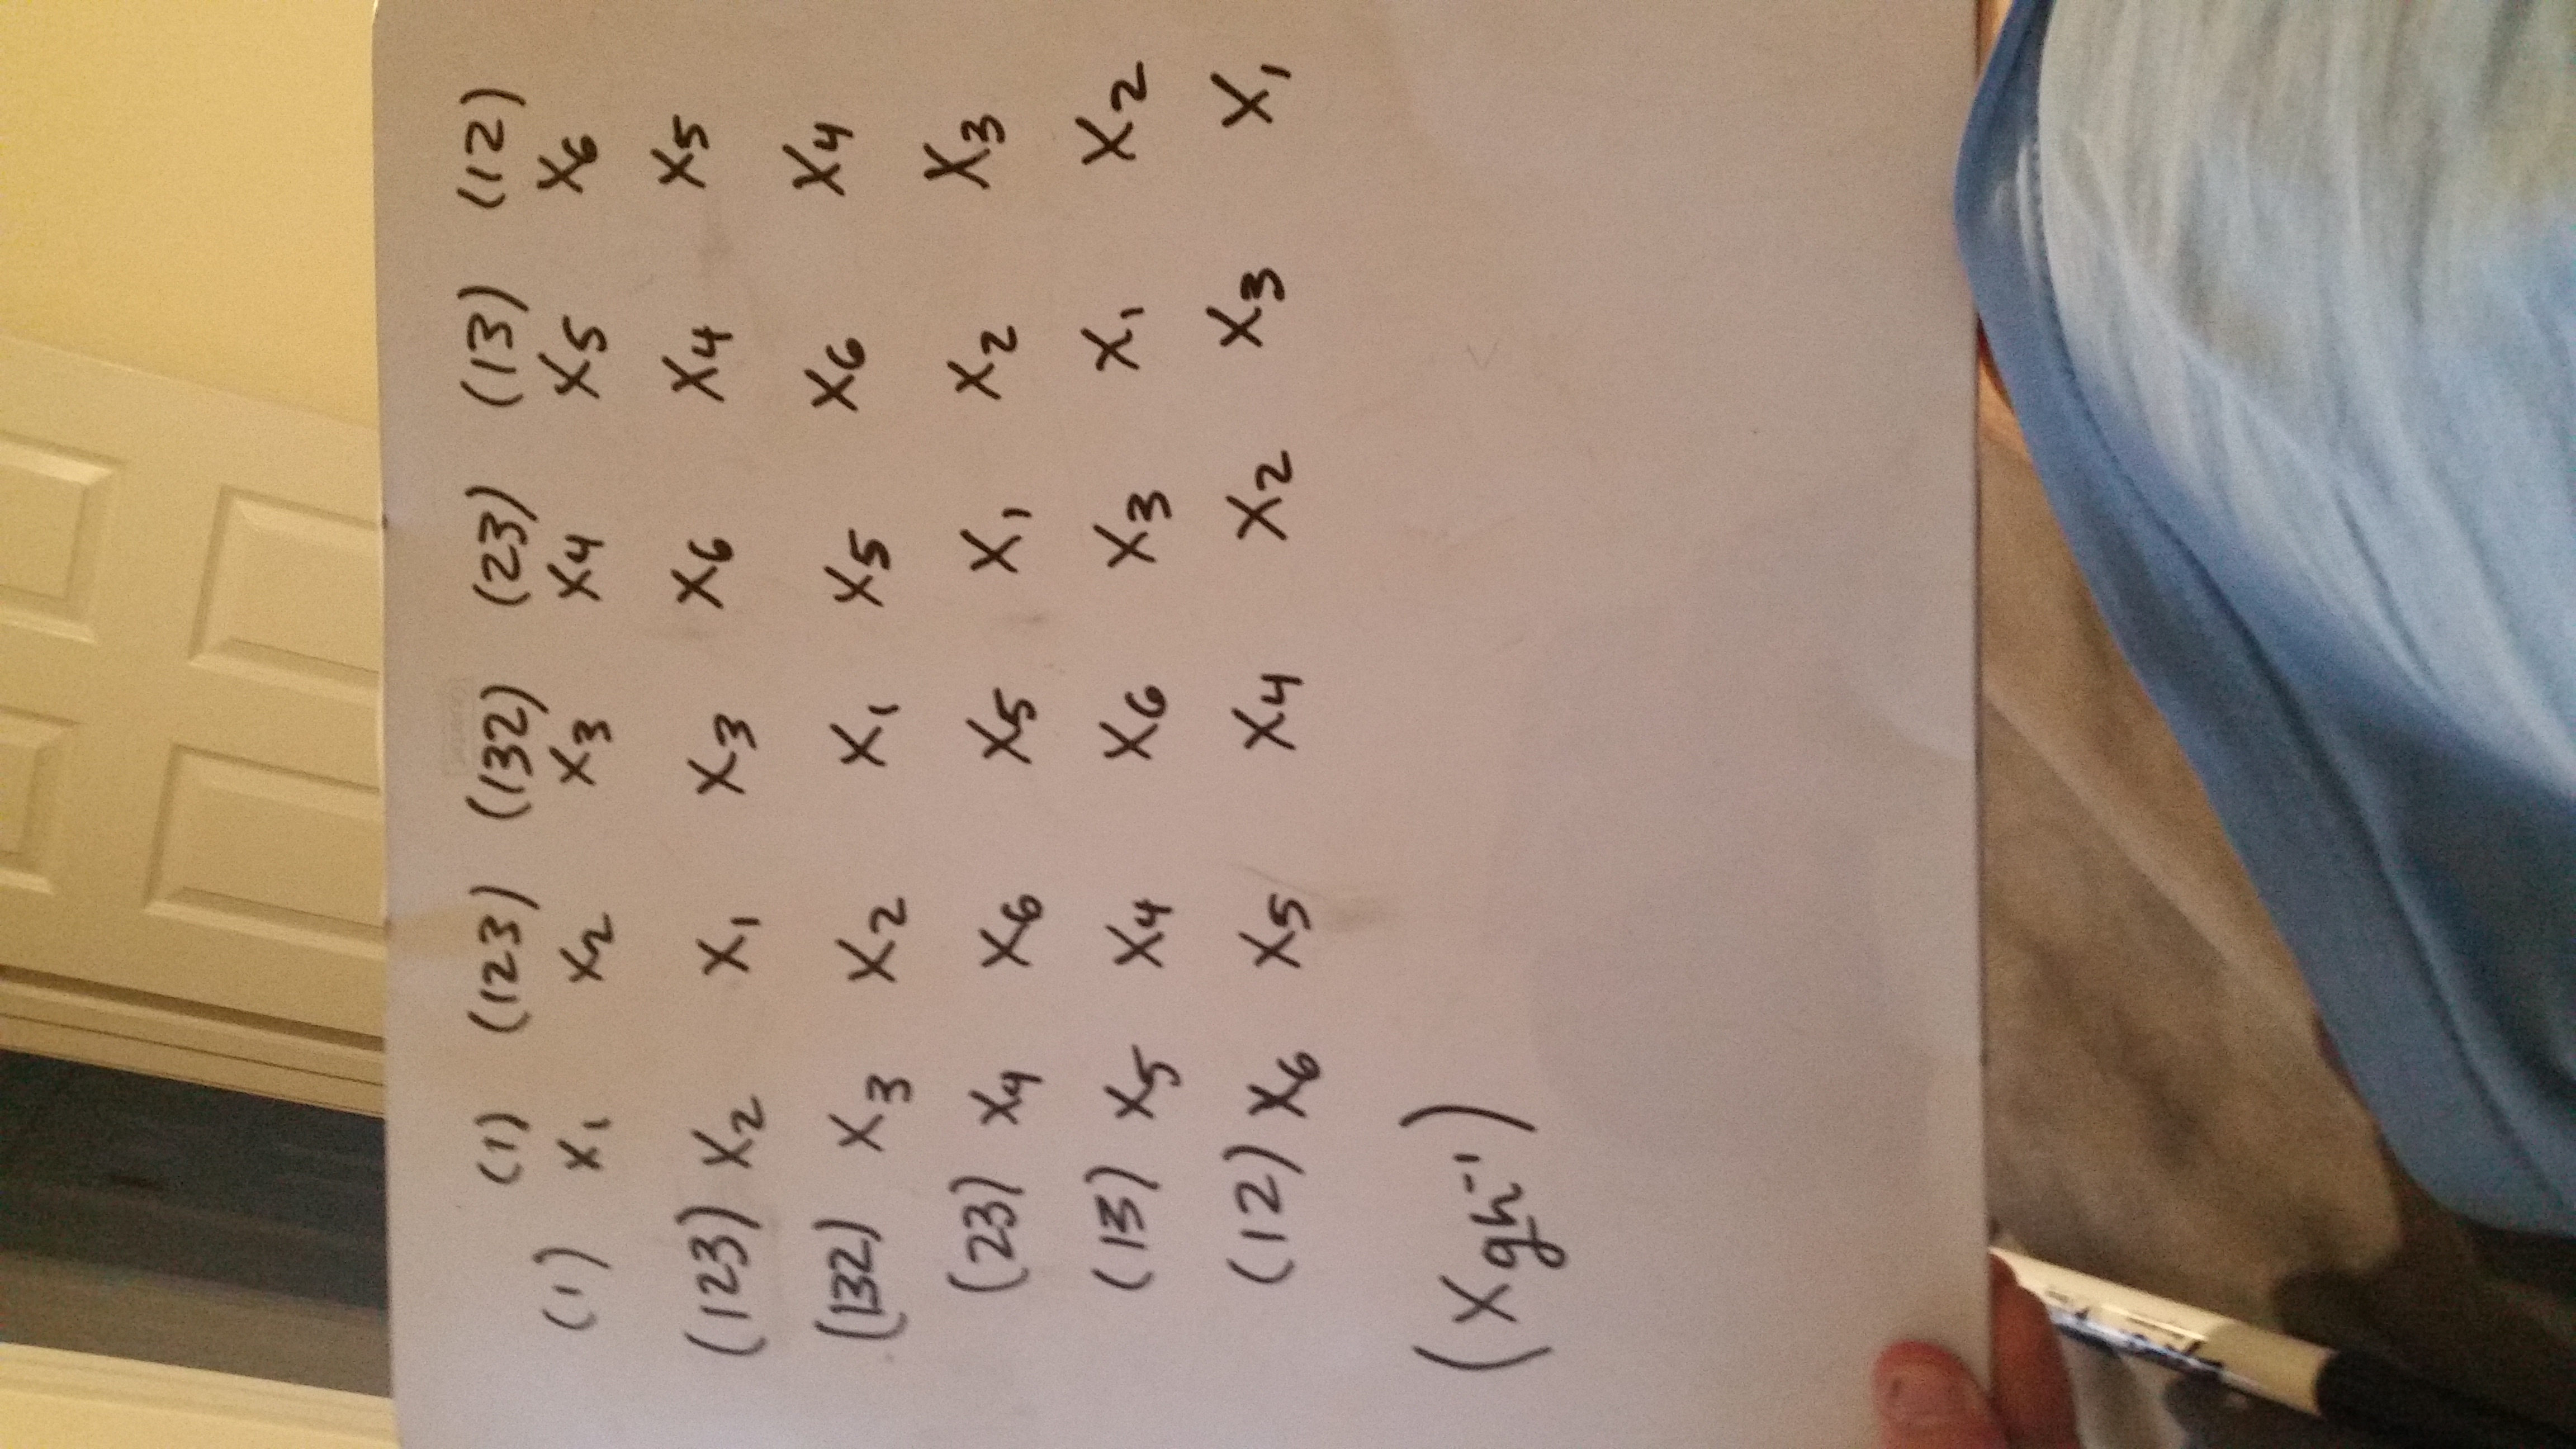 (1) (123) (132) (23) (13) (12)
(1) x₁ x₂ x₃ x₄ x₅ x₆
(123) x₂ x₁ x₃ x₆ x₄ x₅
(132) x₃ x₂ x₁ x₅ x₆ x₄
(23) x₄ x₆ x₅ x₁ x₂ x₃
(13) x₅ x₄ x₆ x₃ x₁ x₂
(12) x₆ x₅ x₄ x₂ x₃ x₁
(x_{gh⁻¹})